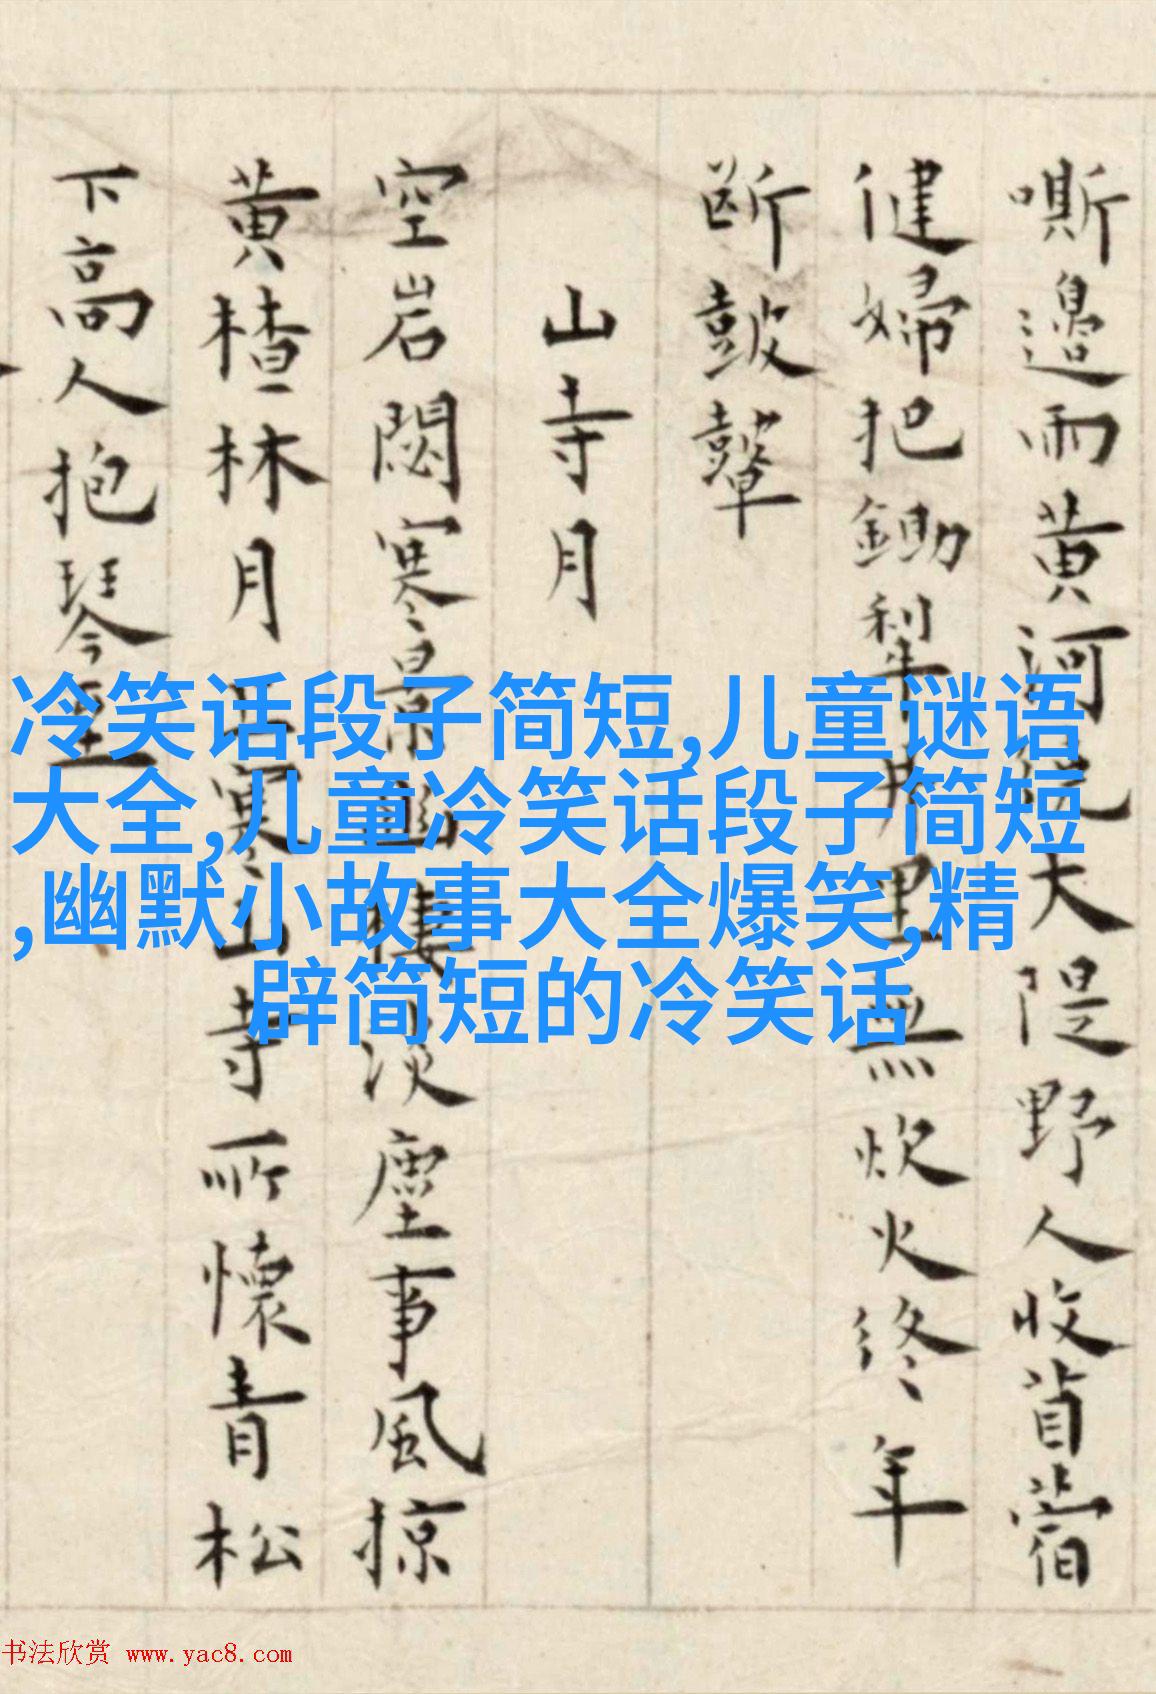 嘶邊雨黄河
大隄野人收
健婦把鋤犁
里無炊火終年
断鼓鼙
山寺月
空岩閟寒景
淡塵事風掠
黄楂林月
寒山寺所懷青松
下高人抱琴
冷笑话段子简短,儿童谜语
大全,儿童冷笑话段子简短
,幽默小故事大全爆笑,精
辟简短的冷笑话
书法欣赏 www.yac8.com